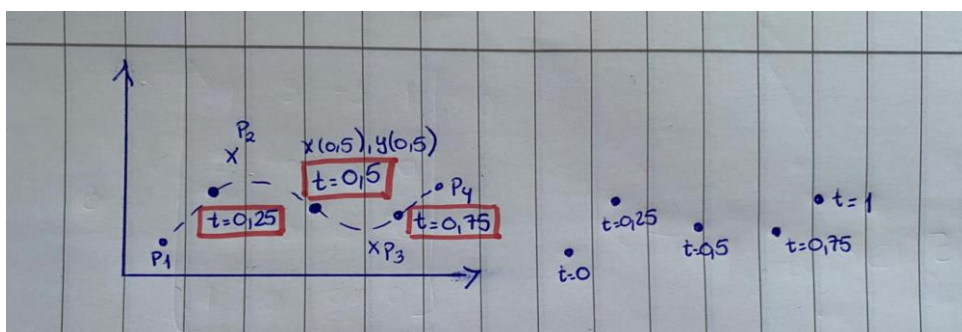 P2
x(0,5), y(0,5)
t=0,5
P4
t=0,25
t=0,75
P1
P3
t=1
t=0,25
t=0,5
t=0,75
t=0